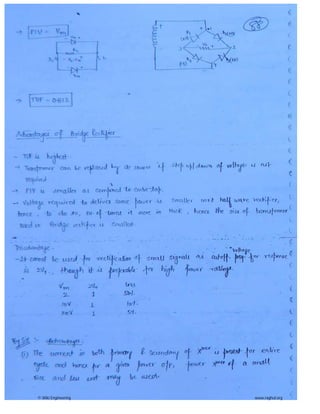 → PIV = Vm
→ TUF = 0.812
Advantages of Bridge Rectifier
→ TUF is highest.
→ Transformer can be replaced by ac source if step up/down of voltage is not
required
→ PIV is smaller as compared to centre-tap.
→ Voltage required to deliver same power is smaller wrt half wave rectifier,
hence, to do so, no. of turns is more in HWR, hence the size of transformer
used in Bridge rectifier is smaller.
Disadvantage:-
→ It cannot be used for rectification of small signals as cutoff voltage for response
is 2Vγ, though it is preferable for high power ratings.
Vm 2Vγ loss
2 1 50%
10V 1 10%
20V 1 5%
(i) The current in both primary & secondary of xmer is present for entire
cycle and hence for a given power o/p, power xmer of a small
size and less cost may be used.
© Wiki Engineering
www.raghul.org